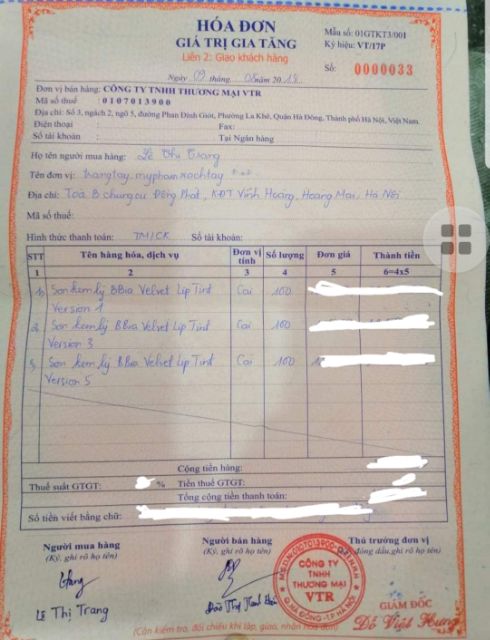 HÓA ĐƠN
GIÁ TRỊ GIA TĂNG
Liên 2: Giao khách hàng
Mẫu số: 01GTKT3/001
Ký hiệu: VT/17P
Số: 0000033
Ngày 09 tháng 08 năm 2018
Đơn vị bán hàng: CÔNG TY TNHH THƯƠNG MẠI VTR
Mã số thuế : 0107013900
Địa chỉ: Số 3, ngách 2, ngõ 5, đường Phan Đình Giót, Phường La Khê, Quận Hà Đông, Thành phố Hà Nội, Việt Nam.
Điện thoại : Fax:
Số tài khoản : Tại Ngân hàng
Họ tên người mua hàng: Lê Thị Trang
Tên đơn vị: trangtay.myphamxachtay
Địa chỉ: Toà B chung cư Đông Phát, KĐT Vĩnh Hoàng, Hoàng Mai, Hà Nội
Mã số thuế:
Hình thức thanh toán: TM/CK Số tài khoản:
STT Tên hàng hóa, dịch vụ Đơn vị tính Số lượng Đơn giá Thành tiền
1 2 3 4 5 6=4x5
Son kem lỳ BBia Velvet Lip Tint Cái 100
Version 1
2 Son kem lỳ BBia Velvet Lip Tint Cái 100
Version 3
3 Son kem lỳ BBia Velvet Lip Tint Cái 100
Version 5
Cộng tiền hàng:
Thuế suất GTGT: % Tiền thuế GTGT:
Tổng cộng tiền thanh toán:
Số tiền viết bằng chữ:
Người mua hàng Người bán hàng Thủ trưởng đơn vị
(Ký, ghi rõ họ tên) (Ký, ghi rõ họ tên) đóng dấu, ghi rõ họ tên)
CÔNG TY
TNHH
THƯƠNG MẠI
VTR
Q.HÀ ĐÔNG-T.P HÀ NỘI
Trang
Lê Thị Trang
GIÁM ĐỐC
Đỗ Việt Hưng
(Cần kiểm tra, đối chiếu khi lập, giao, nhận hóa đơn)